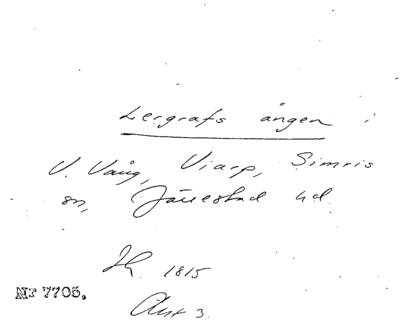 Lergrafs ängen i
V. Vång, Viarp, Simris
sn, Järrestad hd.
1815
Akt 3.
Nr 7705.